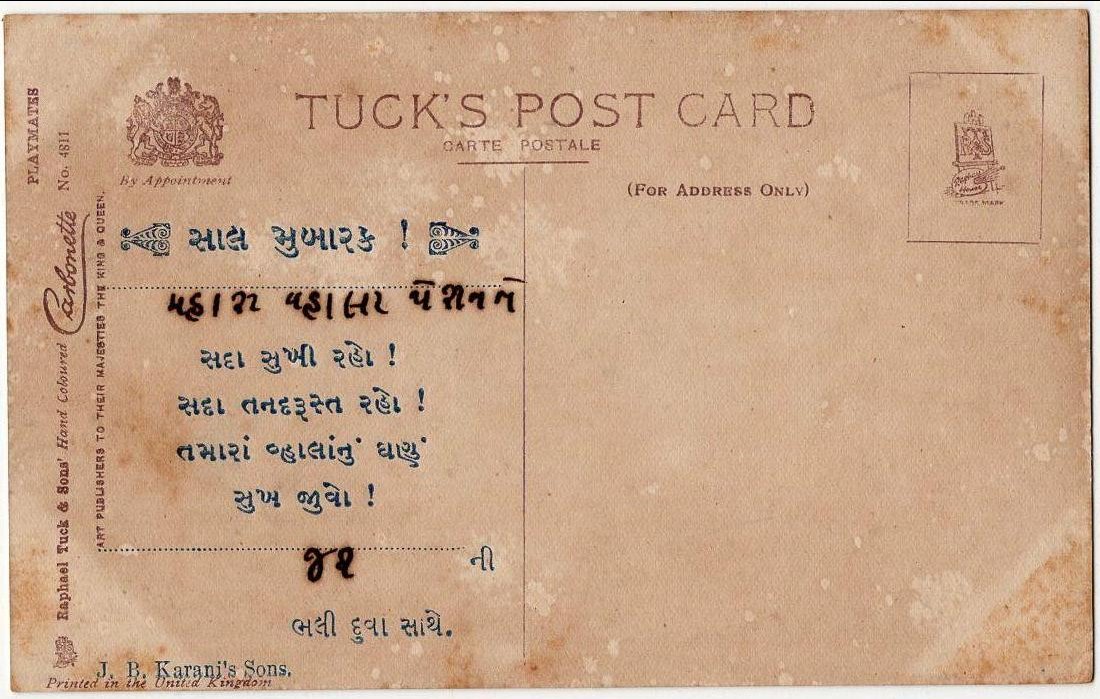 TUCK'S POST CARD
CARTE POSTALE
(FOR ADDRESS ONLY)
By Appointment
PLAYMATES
No. 4811
Raphael Tuck & Sons' Hand Coloured Carbonette
ART PUBLISHERS TO THEIR MAJESTIES THE KING & QUEEN.
TRADE MARK
સાલ મુબારક !
સદા સુખી રહો !
સદા તનદરૂસ્ત રહો !
તમારાં વ્હાલાંનું ઘણું
સુખ જીવો !
ની
ભલી દુવા સાથે.
J. B. Karani's Sons.
Printed in the United Kingdom